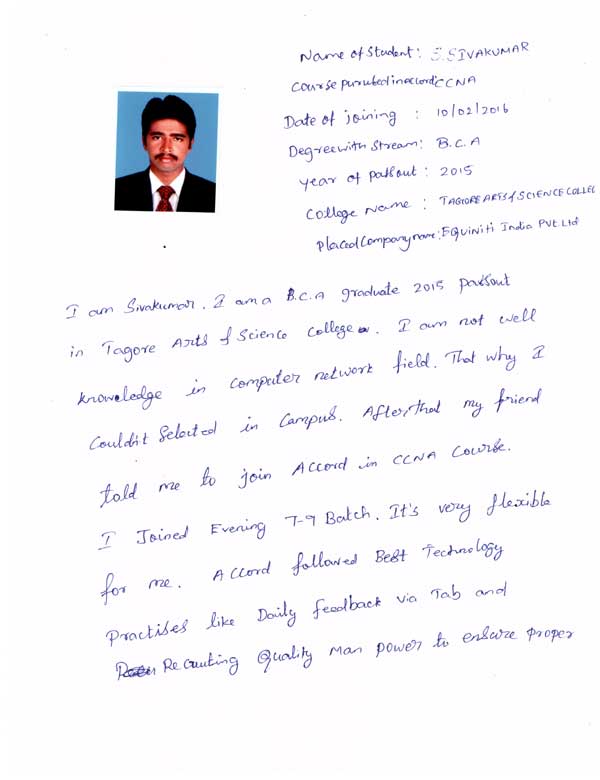 Name of Student: S. SIVAKUMAR
Course pursubed in accord: CCNA
Date of joining : 10/02/2016
Degree with Stream: B.C.A
Year of passout : 2015
College Name : TAGORE ARTS & SCIENCE COLLEG
Placed Company name: EQUINITI India Pvt. Ltd
I am Sivakumar. I am a B.C.A graduate 2015 passout
in Tagore Arts & Science College. I am not well
knowledge in computer network field. That why I
Couldn't Selected in Campus. After that my friend
told me to join Accord in CCNA Course.
I Joined Evening 7-9 Batch. It's very flexible
for me. Accord followed Best Technology
Practises like Daily feedback via Tab and
Recruiting Quality Man power to ensure proper